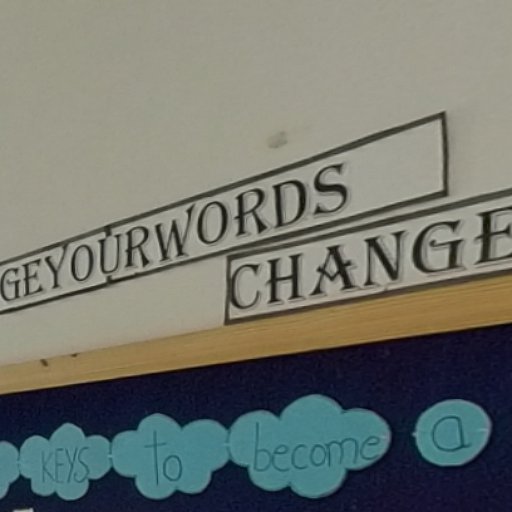 GEYOURWORDS
CHANGE
KEYS to become a